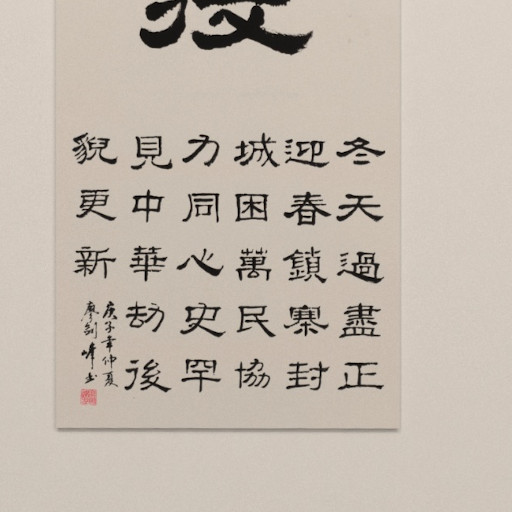 冬天過盡正
迎春鎖寨封
城困萬民協
力同心史罕
見中華劫後
貌更新
庚子年仲夏
廖劍峰书